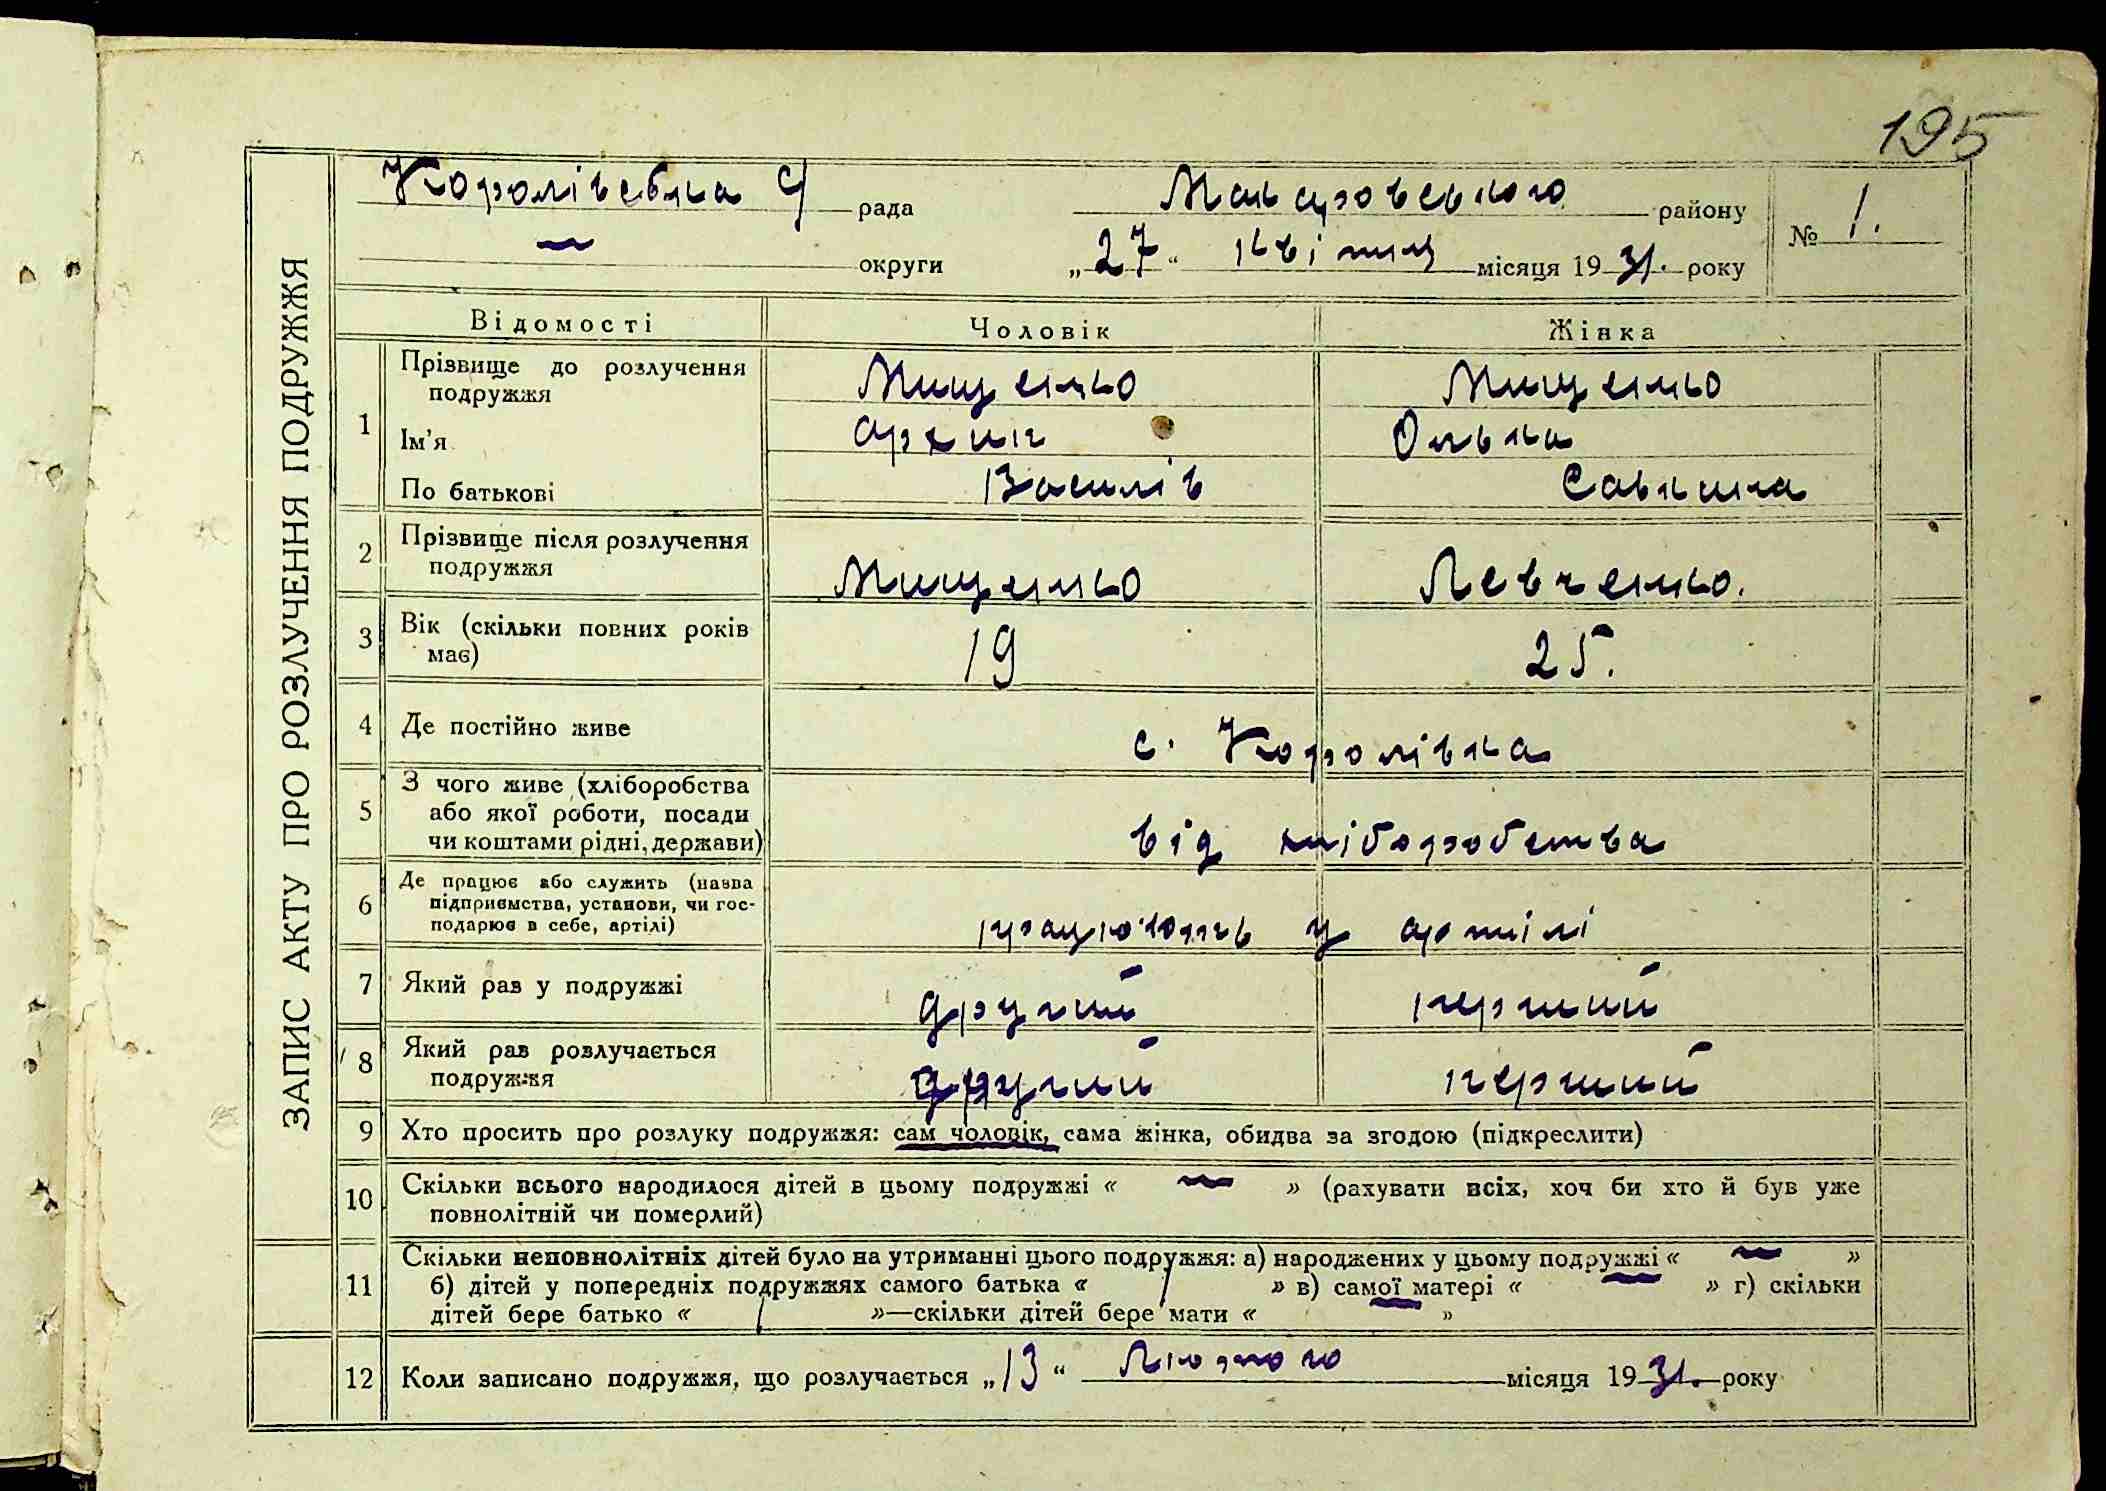 195
Королівська С/ рада Макаровського району № 1.
— округи „27“ квітня місяця 19 31. року
ЗАПИС АКТУ ПРО РОЗЛУЧЕННЯ ПОДРУЖЖЯ
Відомості Чоловік Жінка
1 Прізвище до розлучення подружжя Мищенко Мищенко
Ім'я Архип Олька
По батькові Василів Савкина
2 Прізвище після розлучення подружжя Мищенко Левченко.
3 Вік (скільки повних років має) 19 25.
4 Де постійно живе с. Королівка
5 З чого живе (хліборобства
або якої роботи, посади
чи коштами рідні, держави) від хліборобства
6 Де працює або служить (назва
підприємства, установи, чи гос-
подарює в себе, артілі) працюють у артілі
7 Який раз у подружжі другий перший
8 Який раз розлучається
подружжя другий перший
9 Хто просить про розлуку подружжя: сам чоловік, сама жінка, обидва за згодою (підкреслити)
10 Скільки всього народилося дітей в цьому подружжі « — » (рахувати всіх, хоч би хто й був уже
повнолітній чи померлий)
11 Скільки неповнолітніх дітей було на утриманні цього подружжя: а) народжених у цьому подружжі « — »
б) дітей у попередніх подружжях самого батька « / » в) самої матері « — » г) скільки
дітей бере батько « / »—скільки дітей бере мати « — »
12 Коли записано подружжя, що розлучається „13“ Лютого місяця 19 31. року